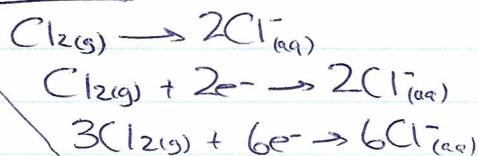 Cl₂(g) → 2Cl⁻(aq)
Cl₂(g) + 2e⁻ → 2Cl⁻(aq)
3Cl₂(g) + 6e⁻ → 6Cl⁻(aq)